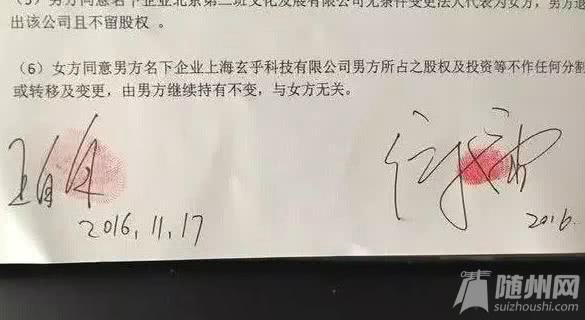 (5) 男方同意名下企业北京第二班文化发展有限公司无条件变更法人代表为女方，男方退
出该公司且不留股权 。
(6) 女方同意男方名下企业上海玄乎科技有限公司男方所占之股权及投资等不作任何分割
或转移及变更，由男方继续持有不变，与女方无关。
2016.11.17
2016.
随州网
suizhoushi.com